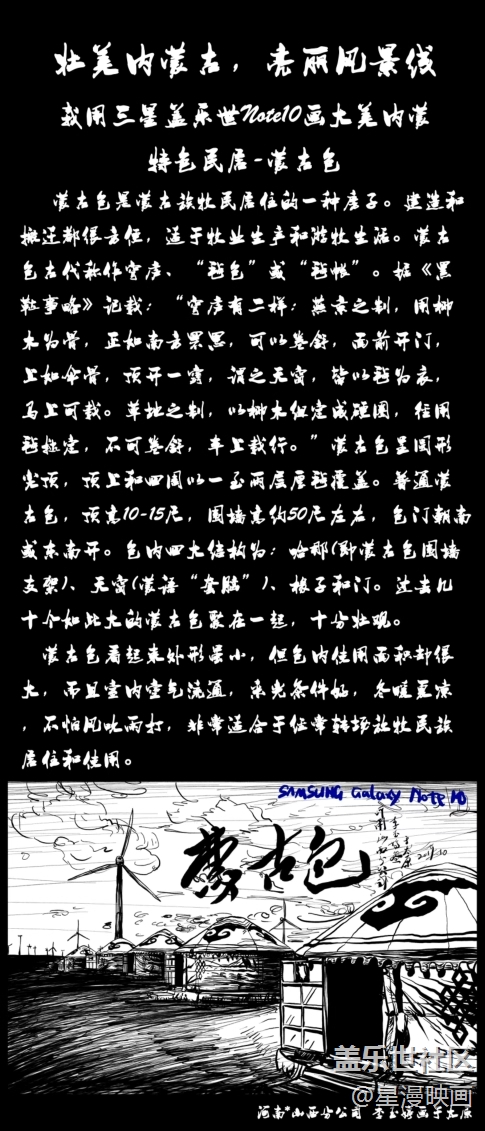 壮美内蒙古，亮丽风景线
我用三星盖乐世Note10画大美内蒙
特色民居-蒙古包
蒙古包是蒙古族牧民居住的一种房子。建造和
搬迁都很方便，适于牧业生产和游牧生活。蒙古
包古代称作穹庐、“毡包”或“毡帐”。据《黑
鞑事略》记载：“穹庐有二样：燕京之制，用柳
木为骨，正如南方罘罳，可以卷舒，面前开门，
上如伞骨，顶开一窍，谓之天窗，皆以毡为衣，
马上可载。草地之制，以柳木组定成硬圈，径用
毡挞定，不可卷舒，车上载行。”蒙古包呈圆形
尖顶，顶上和四周以一至两层厚毡覆盖。普通蒙
古包，顶高10-15尺，围墙高约50尺左右，包门朝南
或东南开。包内四大结构为：哈那(即蒙古包围墙
支架)、天窗(蒙语“套脑”)、椽子和门。过去几
十个如此大的蒙古包聚在一起，十分壮观。
蒙古包看起来外形虽小，但包内使用面积却很
大，而且室内空气流通，采光条件好，冬暖夏凉
，不怕风吹雨打，非常适合于经常转场放牧民族
居住和使用。
SAMSUNG Galaxy Note 10
蒙古包
盖乐世社区
@星漫映画